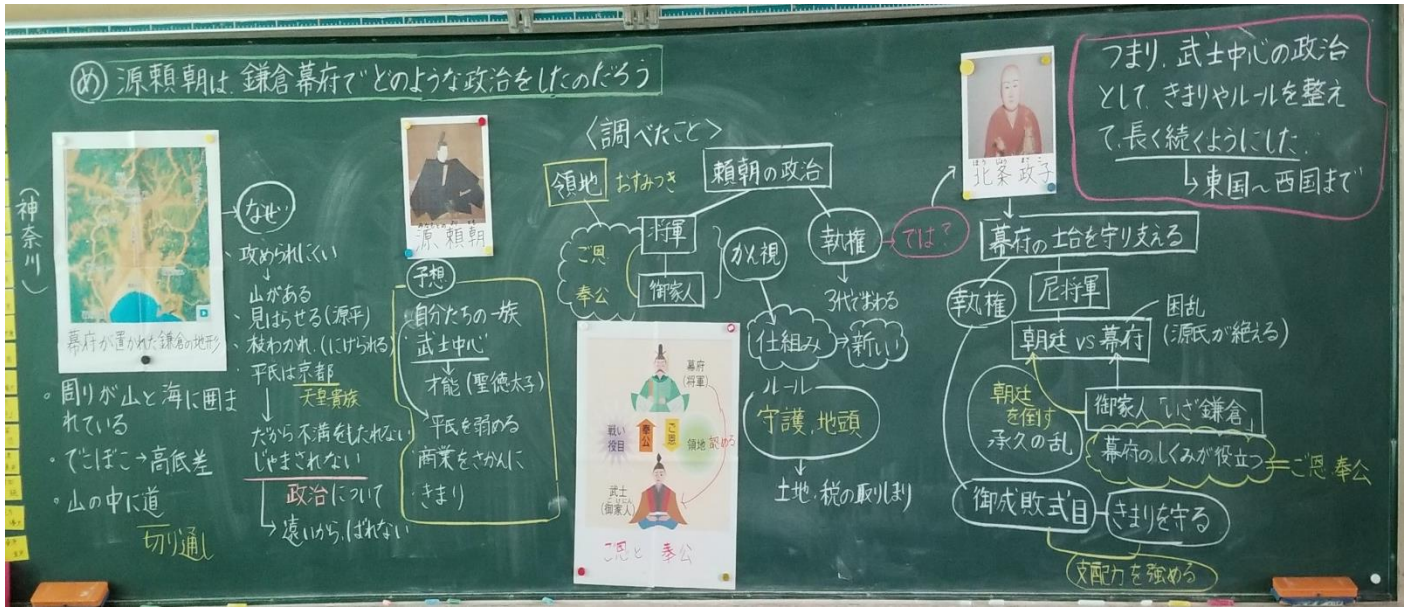 め 源頼朝は、鎌倉幕府でどのような政治をしたのだろう
(神奈川)
幕府が置かれた鎌倉の地形
。周りが山と海に囲ま
れている
・でこぼこ→高低差
・山の中に道
切り通し
なぜ
・攻められにくい
↓
山がある
・見はらせる(源平)
・枝わかれ(にげられる)
・平氏は京都
天皇貴族
だから不満をもたれない
じゃまされない
政治について
→遠いから、ばれない
源頼朝
予想
・自分たちの一族
武士中心
才能(聖徳太子)
・平氏を弱める
・商業をさかんに
・きまり
〈調べたこと〉
領地 おすみつき
頼朝の政治
将軍
御家人
ご恩
奉公
かん視
執権
→では?
3代で
仕組み→新しい
ルール
守護、地頭
↓
土地・税の取りしまり
幕府
(将軍)
戦い
役目
奉公
ご恩
領地 認める
武士
(御家人)
ご恩と奉公
ほうじょうまさこ
北条政子
幕府の土台を守り支える
執権
尼将軍
朝廷 vs 幕府
困乱
(源氏が絶える)
朝廷
を倒す
承久の乱
御家人「いざ鎌倉」
幕府のしくみが役立つ=ご恩奉公
御成敗式目
きまりを守る
支配力を強める
つまり、武士中心の政治
として、きまりやルールを整え
て、長く続くようにした。
→東国〜西国まで